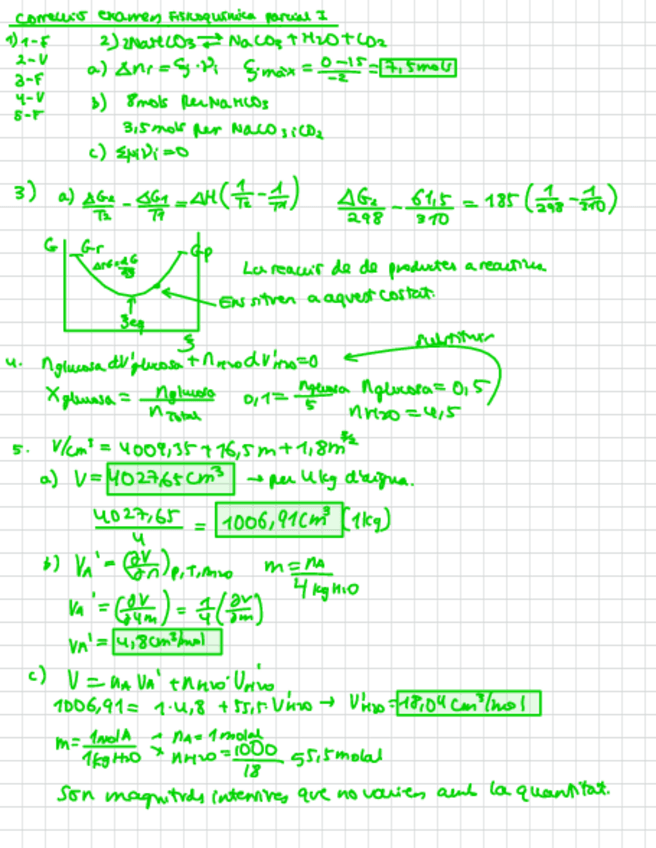 Correcció examen Fisicoquímica parcial I
1) 1-F
2-V
3-F
4-V
5-F
2) 2NaHCO3 ⇄ NaCO3 + H2O + CO2
a) Δni = ξ · νi ξmáx = (0-15)/(-2) = 7,5 mols
b) 8 mols per NaHCO3
3,5 mols per NaCO3 i CO2
c) Σμiνi = 0
3) a) ΔG2/T2 - ΔG1/T1 = ΔH (1/T2 - 1/T1) ΔG2/298 - 61,5/310 = 185 (1/298 - 1/310)
G Gr Gp
ξeq
ξ
La reacció de de productes a reactius
Ens sitven a aquest costat.
4. nglucosa dV'glucosa + nH2O dV'H2O = 0
substituir
Xglucosa = nglucosa/nTotal 0,1 = nglucosa/5 nglucosa = 0,5
nH2O = 4,5
5. V/cm³ = 4009,35 + 16,5 m + 1,8 m^3/2
a) V = 4027,65 cm³ → per 4 kg d'aigua.
4027,65/4 = 1006,91 cm³ (1kg)
b) VA' = (∂V/∂n) P,T,nH2O m = nA/4 kg H2O
VA' = (∂V/∂4m) = 1/4 (∂V/∂m)
VA' = 4,8 cm³/mol
c) V = nA VA' + nH2O · V'H2O
1006,91 = 1 · 4,8 + 55,5 · V'H2O → V'H2O = 18,04 cm³/mol
m = 1 mol A/1 kg H2O → nA = 1 molal
nH2O = 1000/18 55,5 molal
Son magnituds intensives que no varien amb la quantitat.